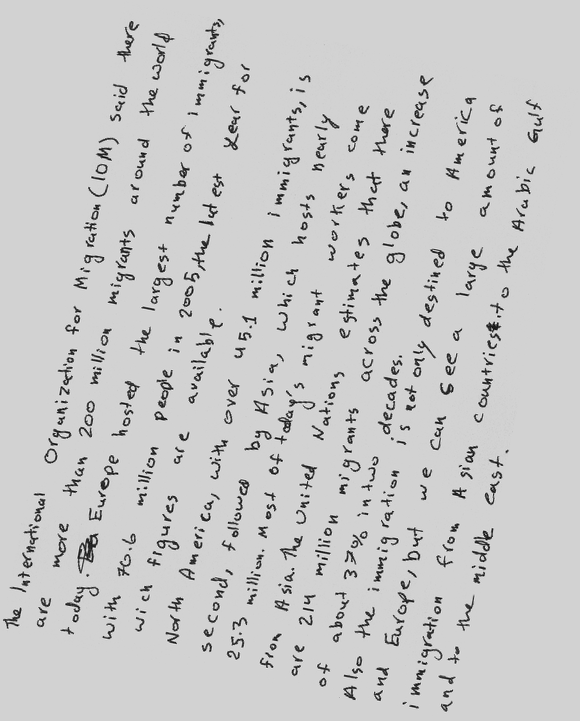 The International Organization for Migration (IOM) said there
are more than 200 million migrants around the world
today. Europe hosted the largest number of immigrants,
with 70.6 million people in 2005, the lutest year for
wich figures are available.
North America, with over 45.1 million immigrants, is
second, followed by Asia, which hosts nearly
25.3 million. Most of today's migrant workers come
from Asia. The United Nations estimates that there
are 214 million migrants across the globe, an increase
of about 37% in two decades.
Also the immigration is not only destined to America
and Europe, but we can see a large amount of
immigration from Asian countries. to the Arabic Gulf
and to the middle east.